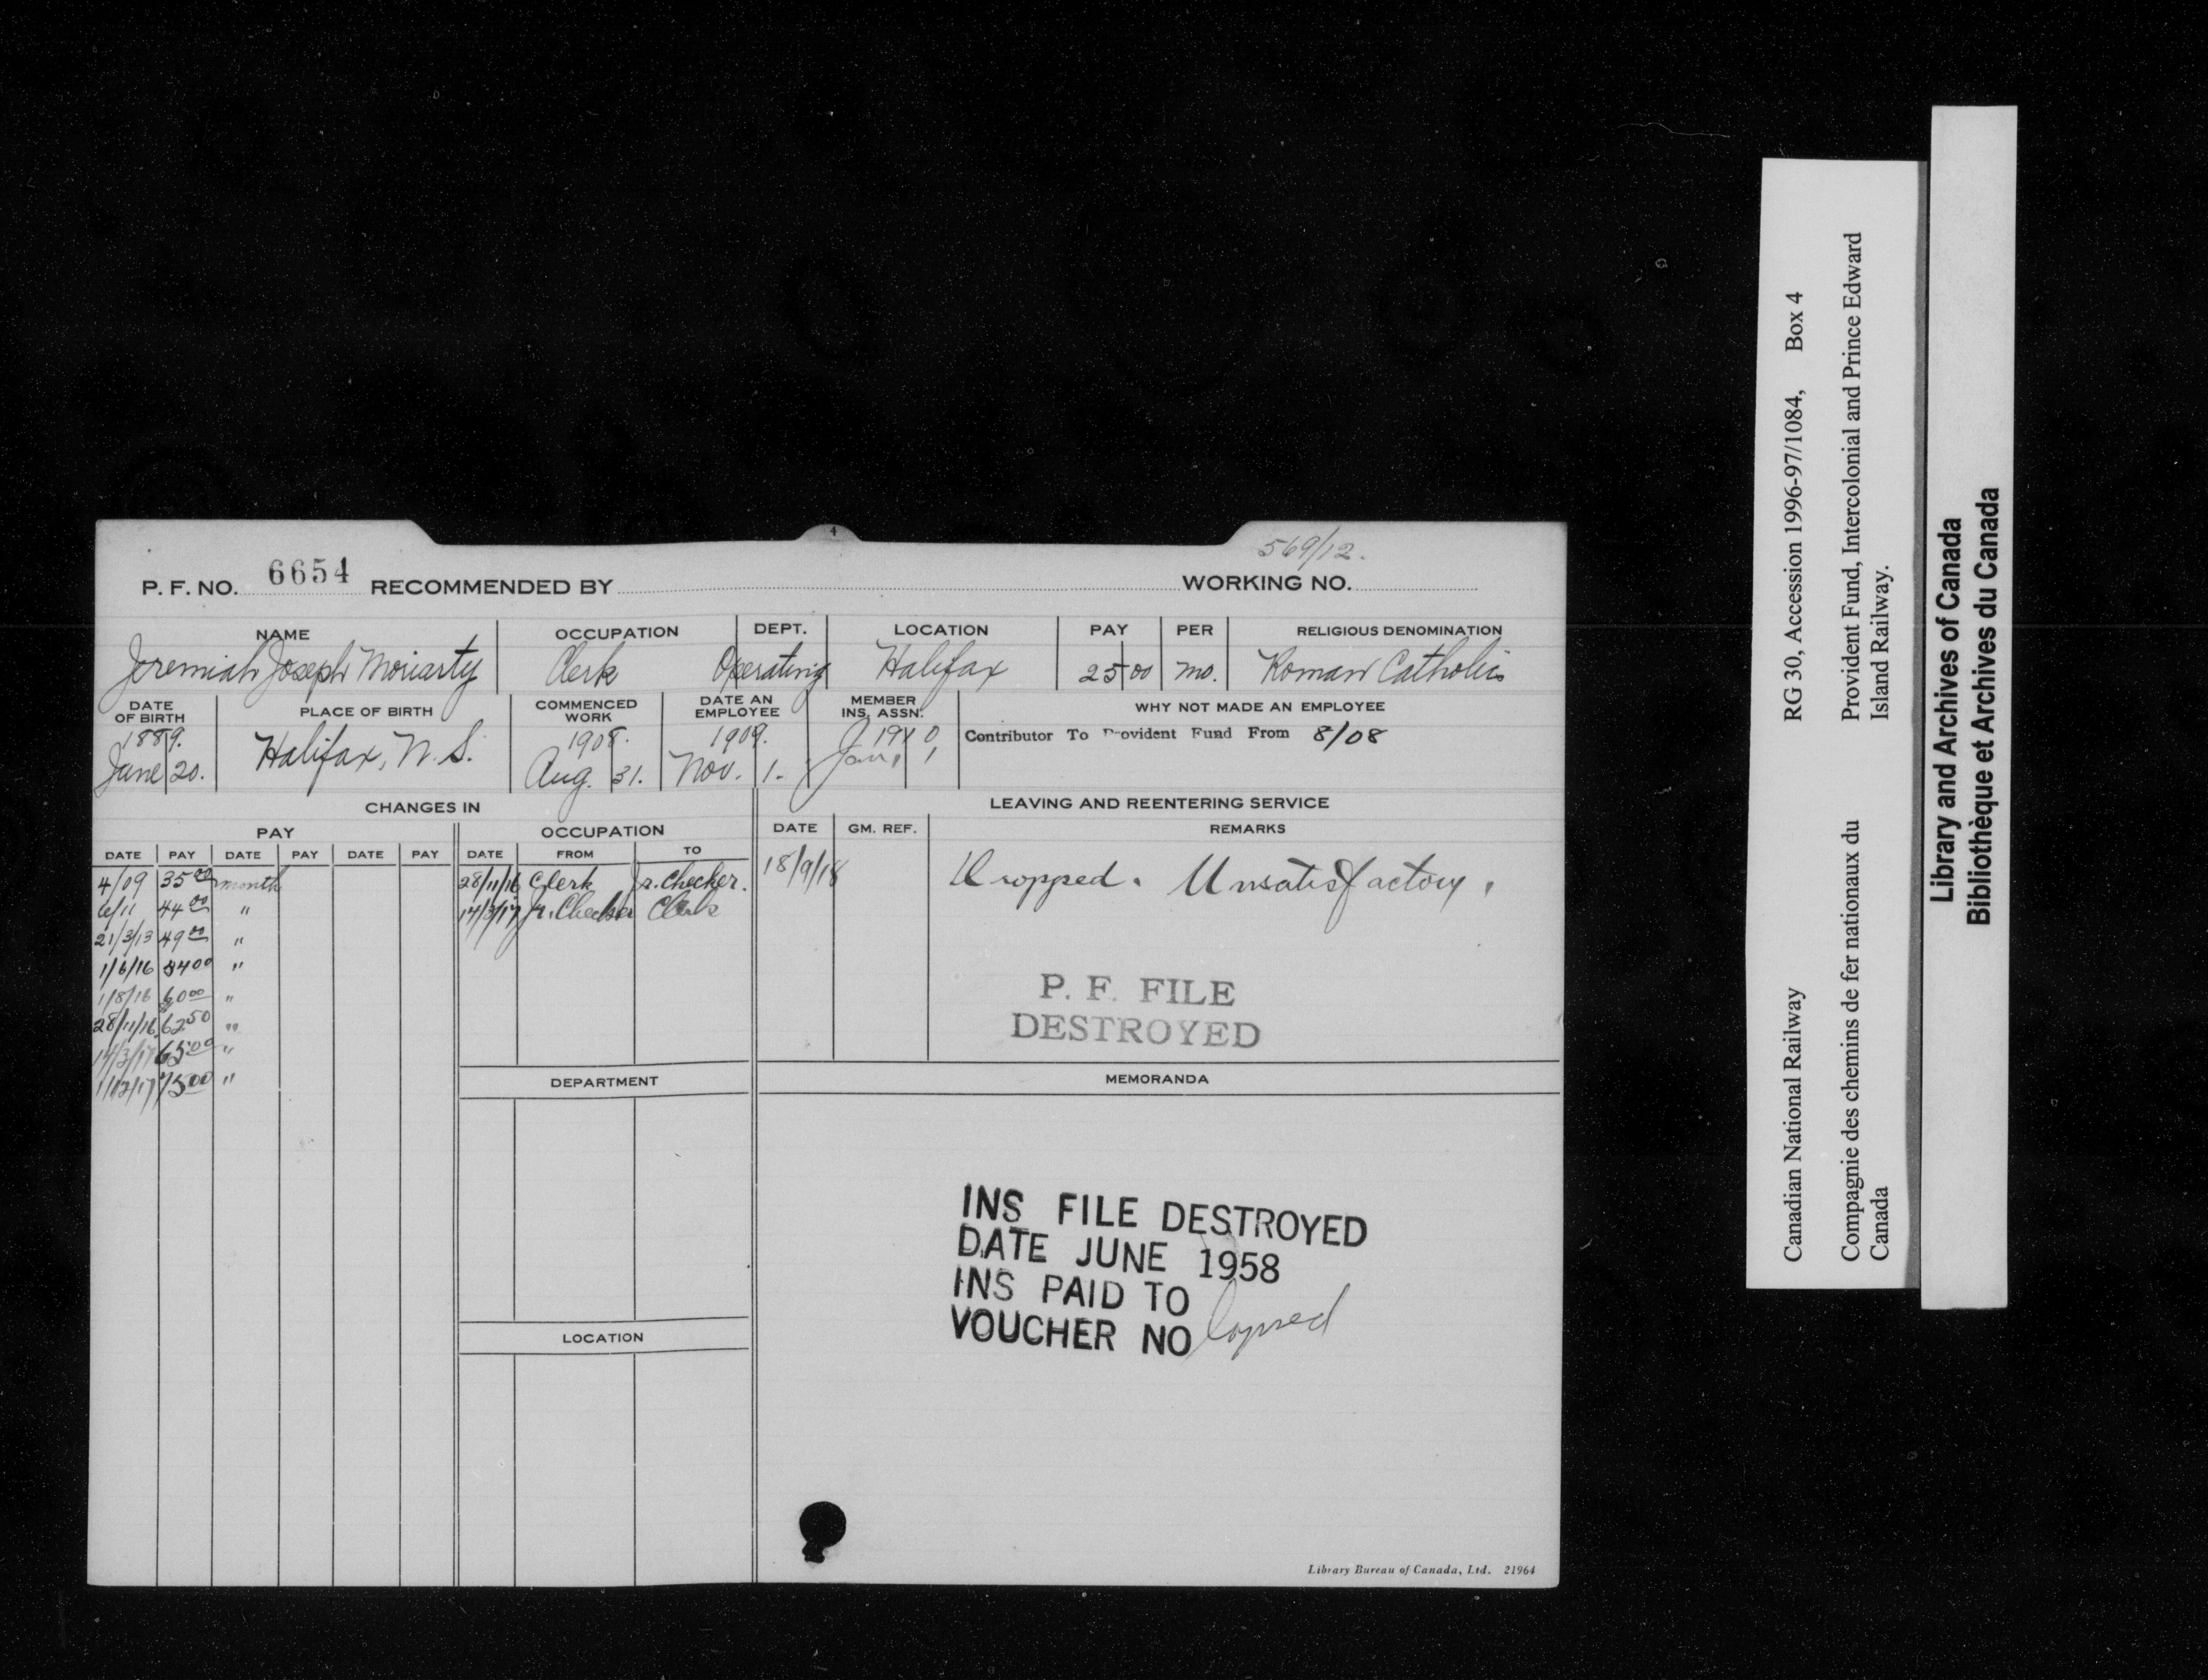 569/12.
4
P. F. NO. 6654 RECOMMENDED BY WORKING NO.
NAME OCCUPATION DEPT. LOCATION PAY PER RELIGIOUS DENOMINATION
Jeremiah Joseph Moriarty Clerk Operating Halifax 25 00 mo. Roman Catholic
DATE OF BIRTH PLACE OF BIRTH COMMENCED WORK DATE AN EMPLOYEE MEMBER INS. ASSN. WHY NOT MADE AN EMPLOYEE
1889. 1908. 1909. 1910 Contributor To Provident Fund From 8/08
June 20. Halifax, N.S. Aug. 31. Nov. 1. Jan. 1
CHANGES IN LEAVING AND REENTERING SERVICE
PAY OCCUPATION DATE GM. REF. REMARKS
DATE PAY DATE PAY DATE PAY DATE FROM TO
4/09 35 00 month 28/11/16 Clerk Jr. Checker. 18/9/18 Dropped. Unsatisfactory.
6/11 44 00 " 14/3/17 Jr. Checker Clerk
21/3/13 49 00 "
1/6/16 54 00 "
1/8/16 60 00 "
28/11/16 62 50 "
14/3/17 65 00 "
1/12/17 75 00 "
P. F. FILE
DESTROYED
DEPARTMENT MEMORANDA
INS FILE DESTROYED
DATE JUNE 1958
INS PAID TO
VOUCHER NO lapsed
LOCATION
Library Bureau of Canada, Ltd. 21964
Canadian National Railway RG 30, Accession 1996-97/1084, Box 4
Compagnie des chemins de fer nationaux du Provident Fund, Intercolonial and Prince Edward
Canada Island Railway.
Library and Archives of Canada
Bibliothèque et Archives du Canada